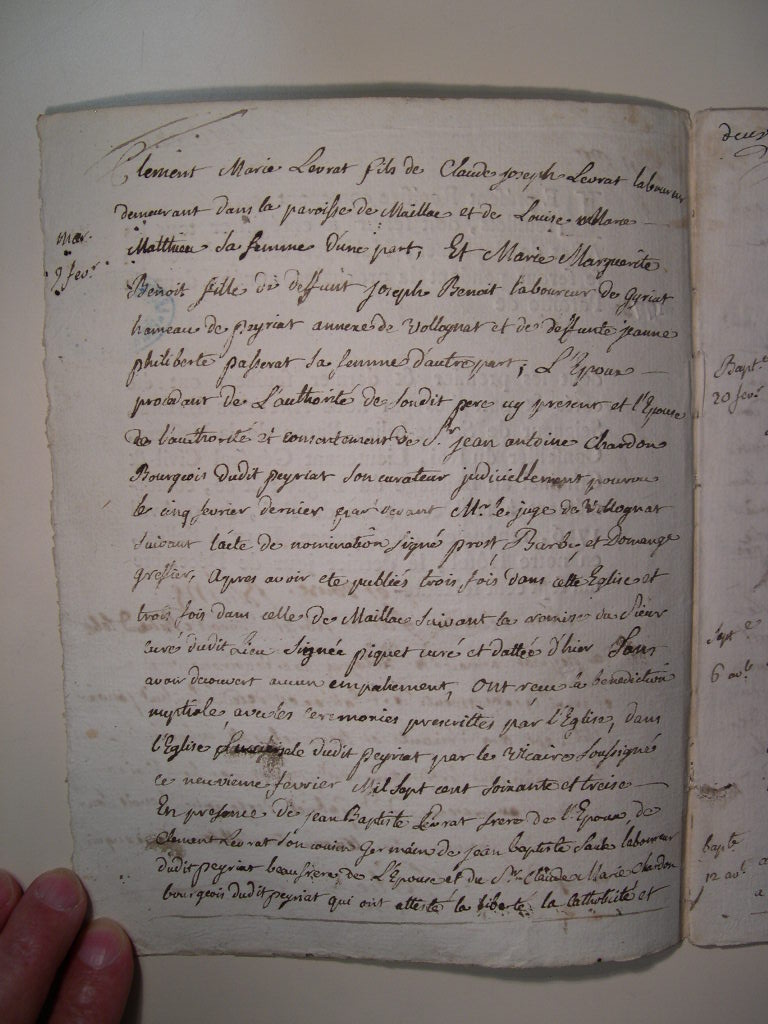 Clement Marie Levrat fils de Claude joseph Levrat laboureur
demeurant dans la paroisse de Maillac et de Louise Marie
mar.
Matthieu sa femme d'une part, Et Marie Marguerite
9 fevr
Benoit fille de deffunt joseph Benoit laboureur de Gyriat
hameau de peyriat annexe de Vollognat et de deffunte jeanne
philiberte passerat sa femme d'autre part, L'Epoux
procedant de L'authorité de sondit pere icy present et l'Epouse
de l'authorité et consentement de Sr jean antoine Chardon
Bourgeois dudit peyriat son curateur judiciellement pourvu
le cinq fevrier dernier par devant Mr le juge de Vollognat
suivant l'acte de nomination signé prost Barbe, et Domange
greffier, Apres avoir eté publiés trois fois dans cette Eglise et
trois fois dans celle de Maillac suivant la remise du Sieur
curé dudit Lieu signée piquet curé et dattée d'hier Sans
avoir decouvert aucun empachement, Ont recu la benediction
nuptiale avec les ceremonies prescrittes par l'Eglise, dans
l'Eglise dudit peyriat par le Vicaire soussigné
ce neuvieme fevrier Mil sept cent soixante et treise
En presence de jean Baptiste Levrat frere de l'Epoux, de
Clement Levrat son cousin Germain de jean baptiste laboureur
dudit peyriat beaufrere de L'Epouse et du Sr Claude Marie Chardon
bourgeois dudit peyriat qui ont attesté la liberté, la catholicité et
deux
Bapt.e
20 fevr
Sept e
6 avl
bapte
12 avl
a